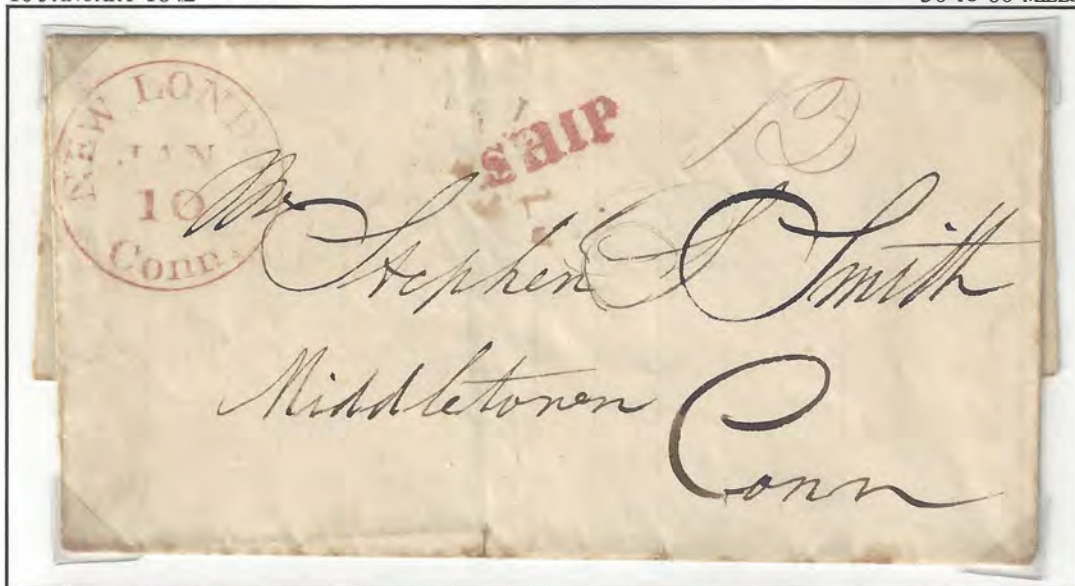 NEW LOND
JAN
10
Conn.
SHIP
12
Mr Stephen S Smith
Middletown
Conn